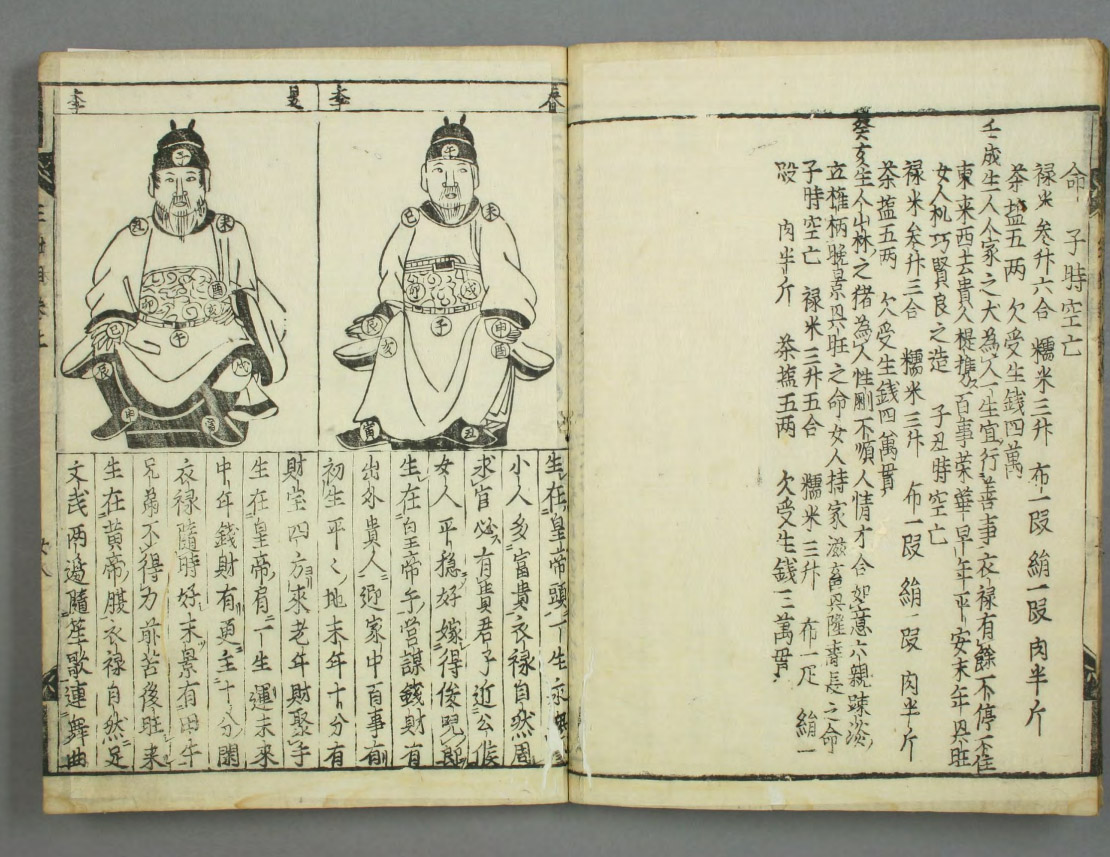 命 子時空亡
禄米叄升六合 糯米三升 布一叚 絹一叚 肉半斤
茶塩五两 欠受生銭四萬
壬戌生人人家之犬為人一生宜行善事衣禄有餘不停不住
東來西去貴人提携百事荣華早年平安末年興旺
女人机巧賢良之造 子丑時空亡
禄米叄升三合 糯米三升 布一叚 絹一叚 肉半斤
茶塩五两 欠受生銭四萬貫
癸亥生人山林之猪為人性剛不順人情才合如意六親疎淡
立權柄晩景興旺之命女人持家滋畜興隆斉長之命
子時空亡 禄米三升五合 糯米三升 布一疋 絹一
叚 肉半斤 茶塩五两 欠受生銭三萬貫
春季
午
未
巳
戌
卯
子
申
酉
辰
亥
丑
寅
生在皇帝頭一生永無
小人多富貴衣禄自然周
求官必有貴君子近公侯
女人平穏好嫁得俊兒郎
生在皇帝手营謀錢財有
出外貴人迎家中百事有
初生平々地末年十分有
財宝四方來老年財聚手
夏季
子
未
丑
酉
亥
卯
巳
午
戌
辰
申
寅
生在皇帝肩一生運未來
中年錢財有更主十分閑
衣禄隨時好末景有田牛
兄弟不得力前苦後旺来
生在黄帝腹衣禄自然足
文武两邊隨笙歌連舞曲